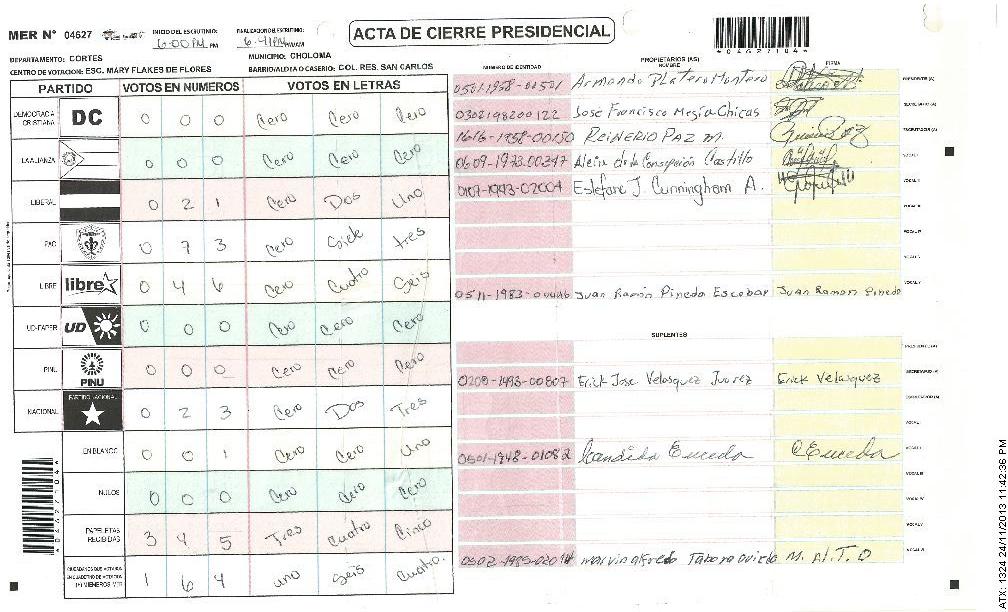 MER N° 04627
INICIO DEL ESCRUTINIO: 6:00 PM PM
FINALIZACION DEL ESCRUTINIO: 6:41 PM
ACTA DE CIERRE PRESIDENCIAL
DEPARTAMENTO: CORTES
MUNICIPIO: CHOLOMA
CENTRO DE VOTACION: ESC. MARY FLAKES DE FLORES
BARRIO/ALDEA O CASERIO: COL. RES. SAN CARLOS
PARTIDO VOTOS EN NUMEROS VOTOS EN LETRAS
DEMOCRACIA CRISTIANA DC 0 0 0 Cero Cero Cero
LA ALIANZA 0 0 0 Cero Cero Cero
LIBERAL 0 2 1 Cero Dos Uno
PAC 0 7 3 Cero Siete tres
LIBRE libre 0 4 6 Cero Cuatro Seis
UD-FAPER UD 0 0 0 Cero Cero Cero
PINU PINU 0 0 0 Cero Cero Cero
NACIONAL PARTIDO NACIONAL 0 2 3 Cero Dos Tres
EN BLANCO 0 0 1 Cero Cero Uno
NULOS 0 0 0 Cero Cero Cero
PAPELETAS RECIBIDAS 3 4 5 Tres Cuatro Cinco
CIUDADANOS QUE VOTARON
EN CUADERNO DE VOTACION
1 6 4 uno Seis Cuatro.
PROPIETARIOS (AS)
NUMERO DE IDENTIDAD NOMBRE FIRMA
0501-1958-00501 Armando Platero Montero PRESIDENTE (A)
0302198200122 Jose Francisco Megia Chicas SECRETARIO (A)
1616-1958-00130 REINERIO PAZ M. ESCRUTADOR (A)
0609-1973-00347 Concepcion Castillo VOCAL I
0107-1993-02004 J. Cunningham A. VOCAL II
0511-1983- Juan Ramón Pineda Escobar Juan Ramon Pineda
SUPLENTES
PRESIDENTE (A)
0209-1993-00807 Erick Jose Velasquez Juarez Erick Velasquez SECRETARIO (A)
ESCRUTADOR (A)
0501-1948-01082 Candida Euceda CEuceda
0502-1985- Marvin Alfredo Tabora M. A. T. O
04627104
ATX: 1324 24/11/2013 11:42:36 PM